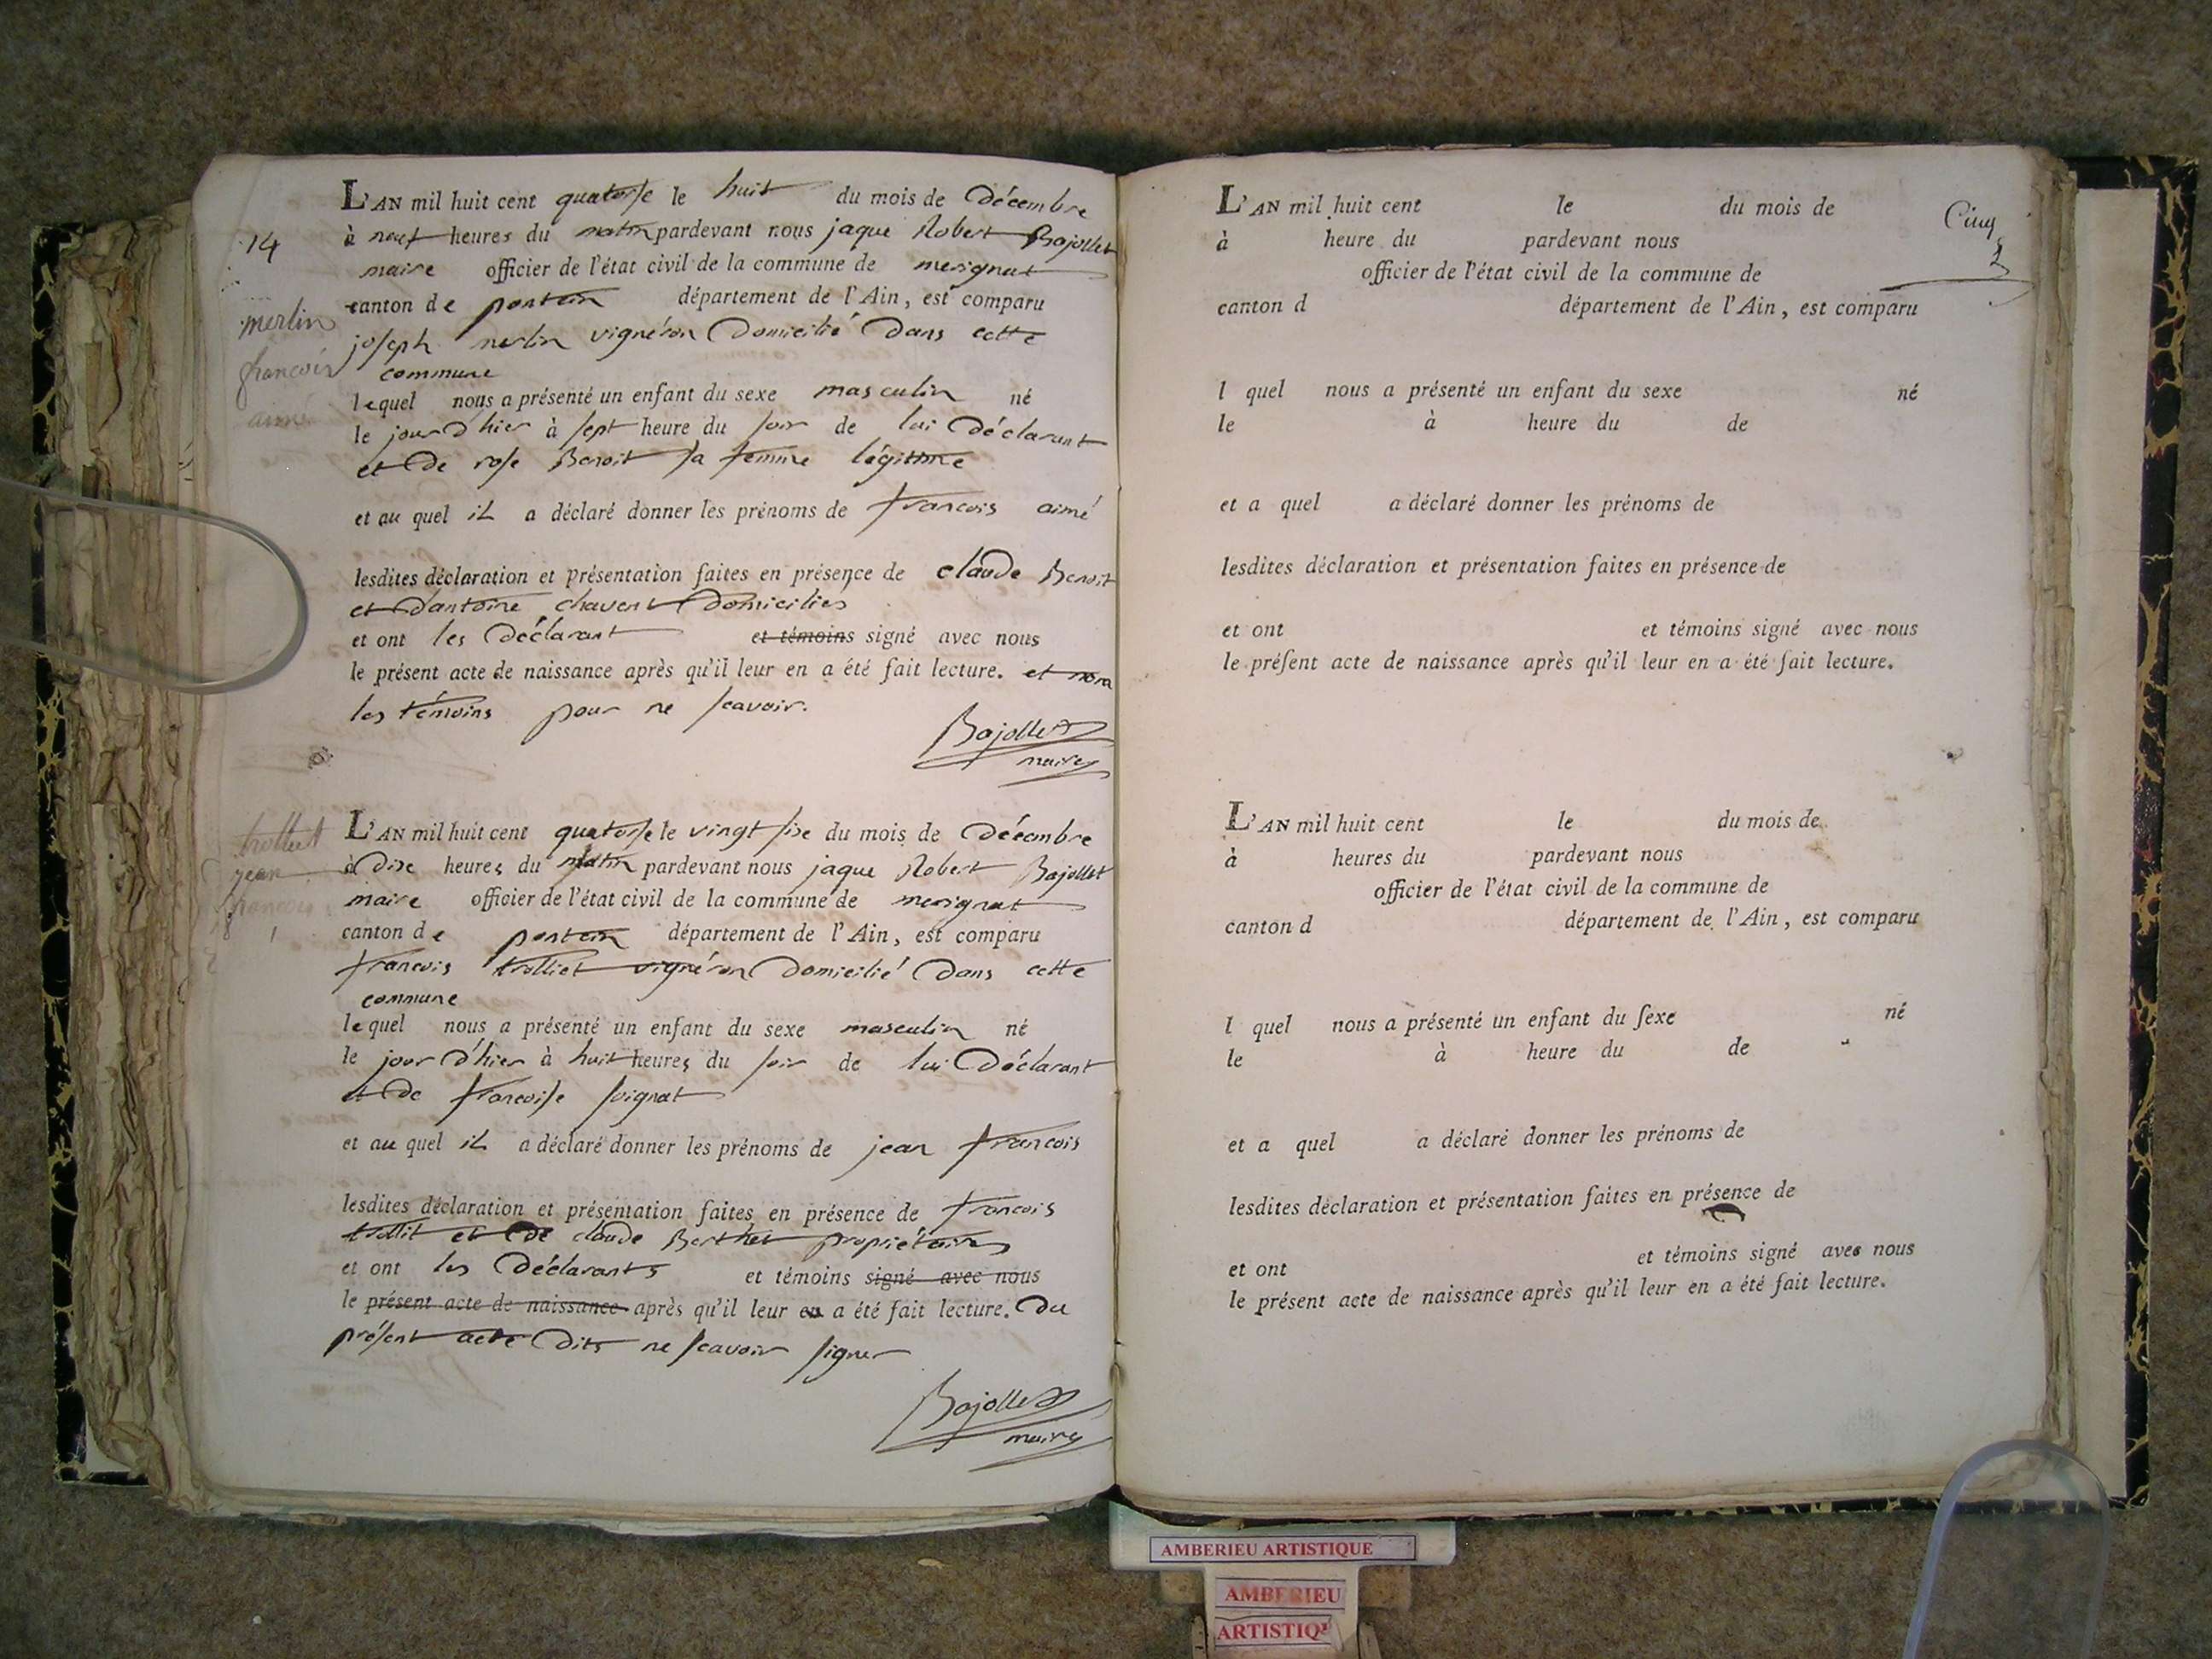 14
merlin
francois
aimé
L'AN mil huit cent quatorse le huit du mois de Décembre
à neuf heures du matin pardevant nous jaque Robert Bajollet
maire officier de l'état civil de la commune de merignat
canton de poncin département de l'Ain, est comparu
joseph merlin vignéron Domicilié Dans cette
commune
lequel nous a présenté un enfant du sexe masculin né
le jour d'hier à sept heure du soir de lui Déclarant
et De rose Benoit sa femme légitime
et au quel il a déclaré donner les prénoms de francois aimé
lesdites déclaration et présentation faites en présence de claude Benoit
et D'antoine chavent Domiciliés
et ont les Déclarant et témoins signé avec nous
le présent acte de naissance après qu'il leur en a été fait lecture. et non
les témoins pour ne scavoir.
Bajollet
maire
trolliet
jean
francois
L'AN mil huit cent quatorse le vingt sixe du mois de Décembre
à Dixe heures du matin pardevant nous jaque Robert Bajollet
maire officier de l'état civil de la commune de merignat
canton de poncin département de l'Ain, est comparu
francois trolliet vignéron Domicilié Dans cette
commune
lequel nous a présenté un enfant du sexe masculin né
le jour d'hier à huit heures du soir de lui Déclarant
et De francoise soignat
et au quel il a déclaré donner les prénoms de jean francois
lesdites déclaration et présentation faites en présence de francois
trollit et De claude Berthet propriétaires
et ont les Déclarants et témoins signé avec nous
le présent acte de naissance après qu'il leur en a été fait lecture. Du
présent acte Dits ne scavoir signer
Bajollet
maire
Cinq
L'AN mil huit cent le du mois de
à heure du pardevant nous
officier de l'état civil de la commune de
canton d département de l'Ain, est comparu
l quel nous a présenté un enfant du sexe né
le à heure du de
et a quel a déclaré donner les prénoms de
lesdites déclaration et présentation faites en présence de
et ont et témoins signé avec nous
le préſent acte de naissance après qu'il leur en a été fait lecture.
L'AN mil huit cent le du mois de
à heures du pardevant nous
officier de l'état civil de la commune de
canton d département de l'Ain, est comparu
l quel nous a présenté un enfant du ſexe né
le à heure du de
et a quel a déclaré donner les prénoms de
lesdites déclaration et présentation faites en présence de
et ont et témoins signé avec nous
le présent acte de naissance après qu'il leur en a été fait lecture.
AMBERIEU ARTISTIQUE
AMBERIEU
ARTISTIQ